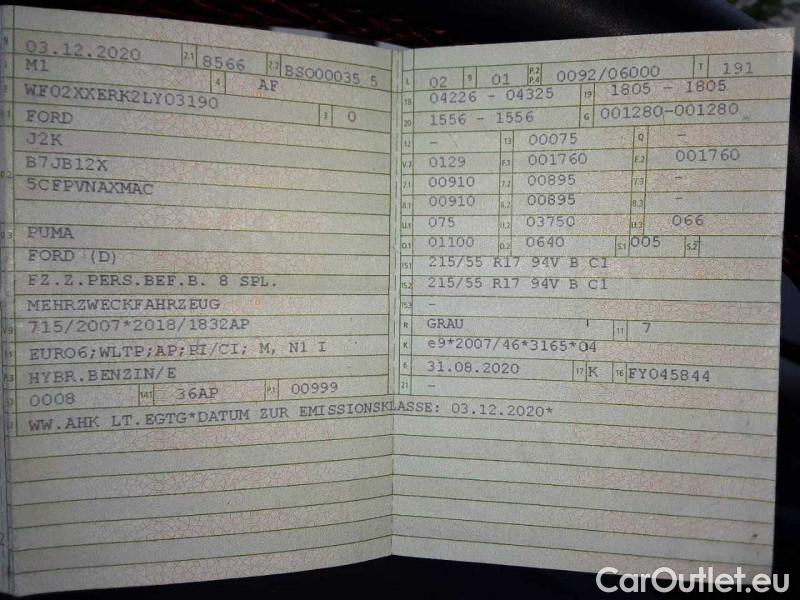 B 03.12.2020 2.1 8566 2.2 BSO00035 5
J M1 4 AF
E WF02XXERK2LY03190
D.1 FORD 3 0
J2K
B7JB12X
D.2 5CFPVNAXMAC
D.3 PUMA
FORD (D)
FZ.Z.PERS.BEF.B. 8 SPL.
MEHRZWECKFAHRZEUG
V.9 715/2007*2018/1832AP
EURO6;WLTP;AP;PI/CI; M, N1 I
P.3 HYBR.BENZIN/E
10 0008 14.1 36AP P.1 00999
22 WW.AHK LT.EGTG*DATUM ZUR EMISSIONSKLASSE: 03.12.2020*
L 02 9 01 P.2 P.4 0092/06000 T 191
18 04226 - 04325 19 1805 - 1805
20 1556 - 1556 G 001280-001280
12 - 13 00075 Q -
V.7 0129 F.1 001760 F.2 001760
7.1 00910 7.2 00895 7.3 -
8.1 00910 8.2 00895 8.3 -
U.1 075 U.2 03750 U.3 066
O.1 01100 O.2 0640 S.1 005 S.2 -
15.1 215/55 R17 94V B C1
15.2 215/55 R17 94V B C1
15.3 -
R GRAU 11 7
K e9*2007/46*3165*04
6 31.08.2020 17 K 16 FY045844
21 -
CarOutlet.eu